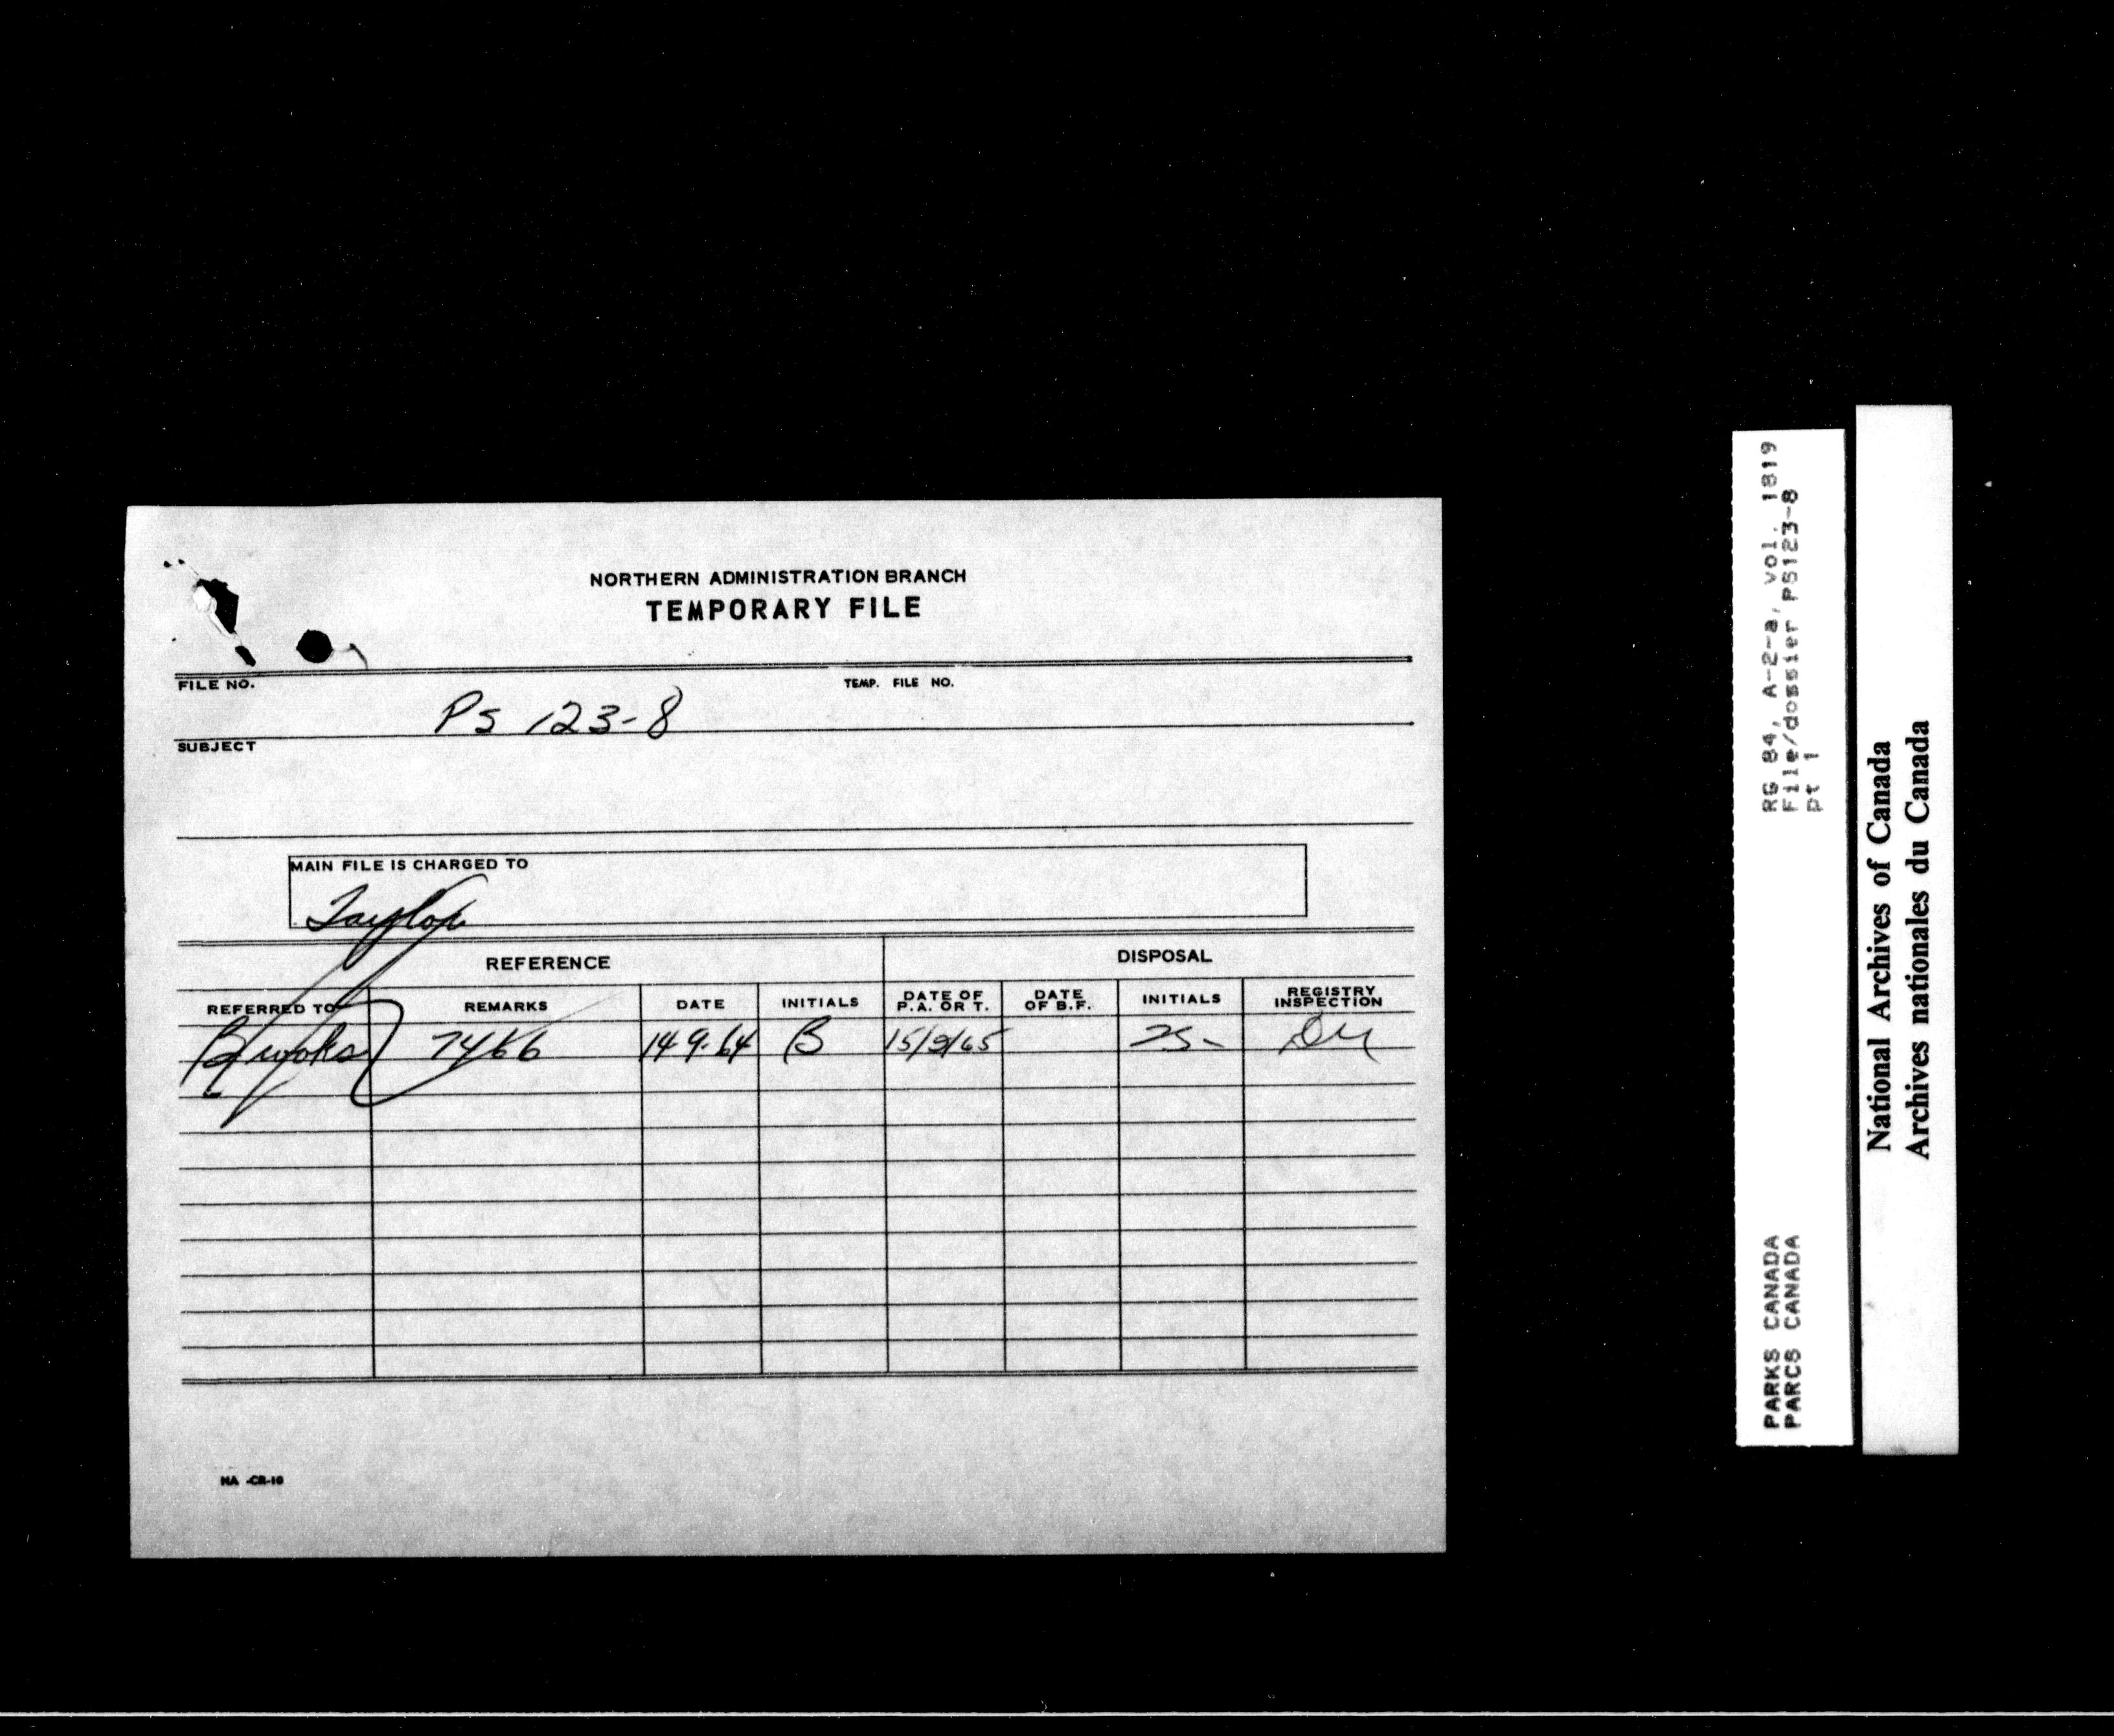 NORTHERN ADMINISTRATION BRANCH
TEMPORARY FILE
FILE NO. PS 123-8 TEMP. FILE NO.
SUBJECT
MAIN FILE IS CHARGED TO
Taylor
REFERENCE DISPOSAL
REFERRED TO REMARKS DATE INITIALS DATE OF P.A. OR T. DATE OF B.F. INITIALS REGISTRY INSPECTION
Brooks 7466 14-9-64 B
NA -CR-10
RG 84, A-2-a, vol. 1819
File/dossier PS123-8
pt 1
PARKS CANADA
PARCS CANADA
National Archives of Canada
Archives nationales du Canada